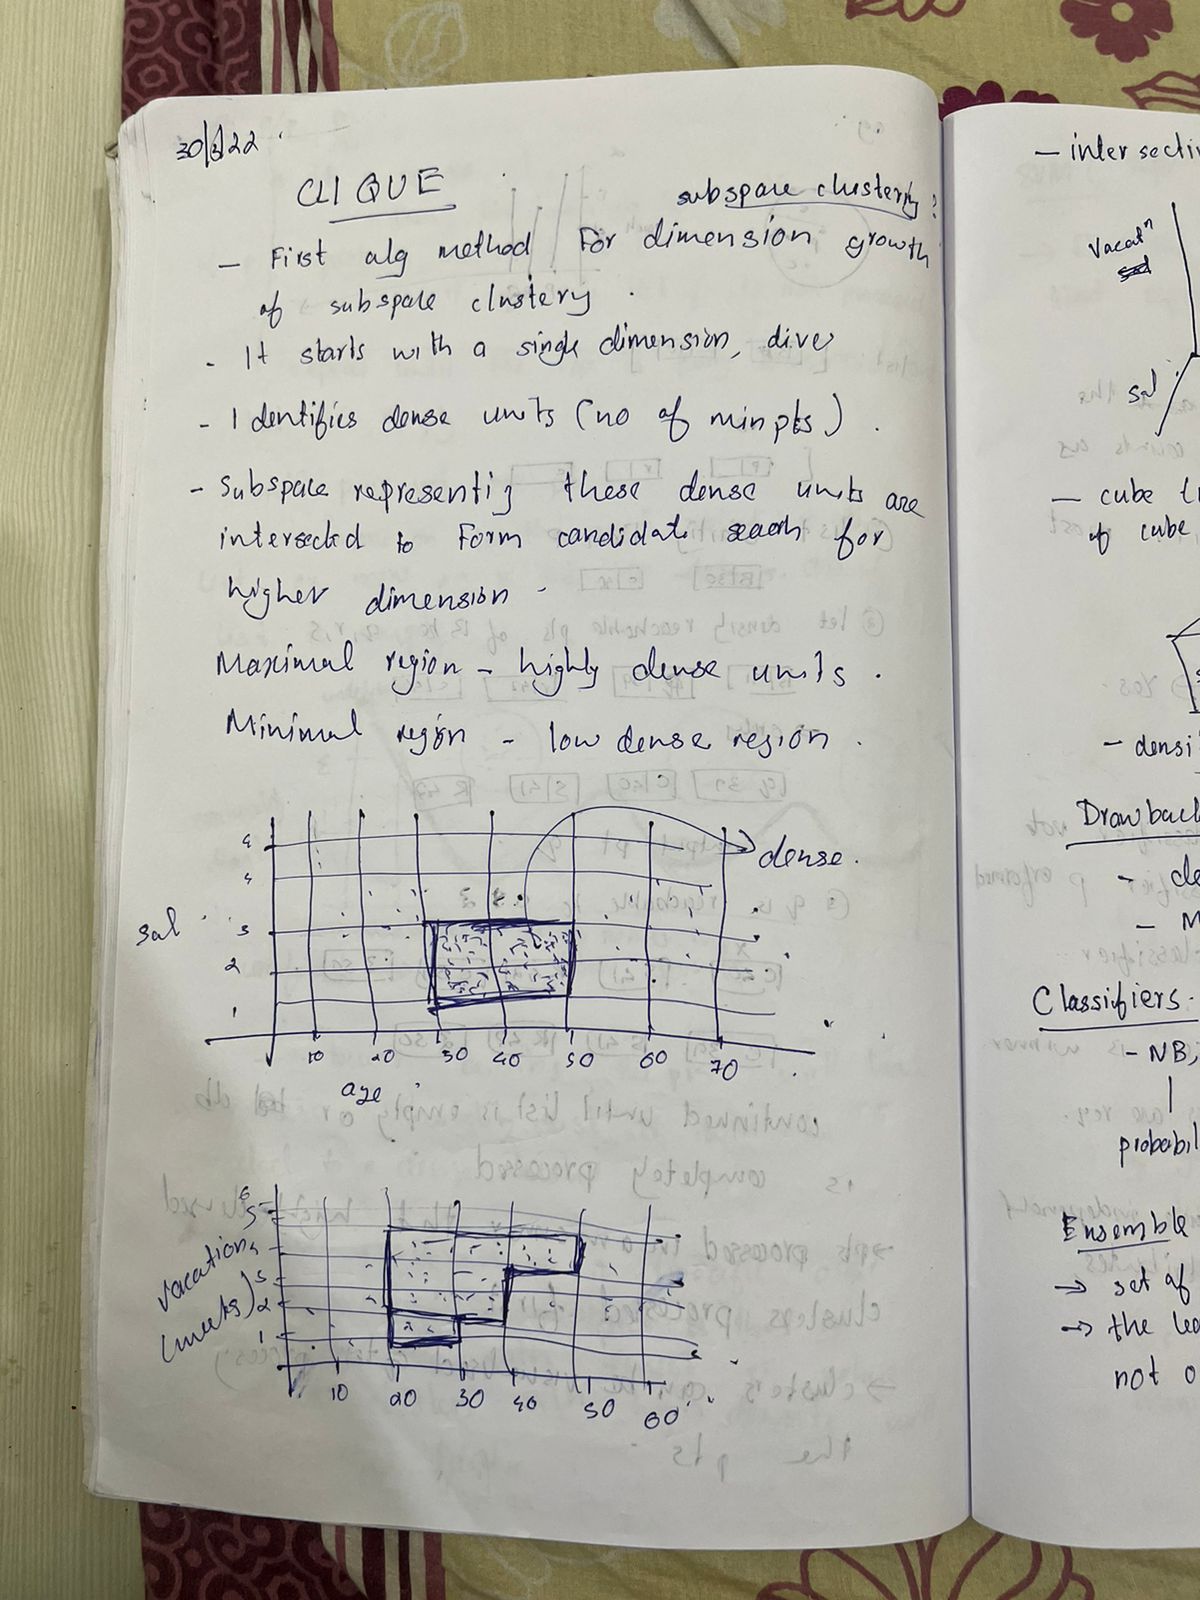 30/3/22
CLIQUE
subspace clustering :
- First alg method for dimension growth
of subspace clustery .
- It starts with a single dimension, dive
- Identifies dense units (no of minpts) .
- Subspace representig these dense units are
intersected to form candidate seach for
higher dimension -
Maximal region - highly dense units .
Minimal region - low dense region .
dense .
sal
3
2
1
10 20 30 40 50 60 70
age
vacation
(weeks)
6
5
4
3
2
1
10 20 30 40 50 60
- intersecti
Vacatn
sal
- cube
of cube
- densi
Drawback
- de
- M
Classifiers -
- NB,
probabil
Ensemble
→ set of
→ the lea
not o